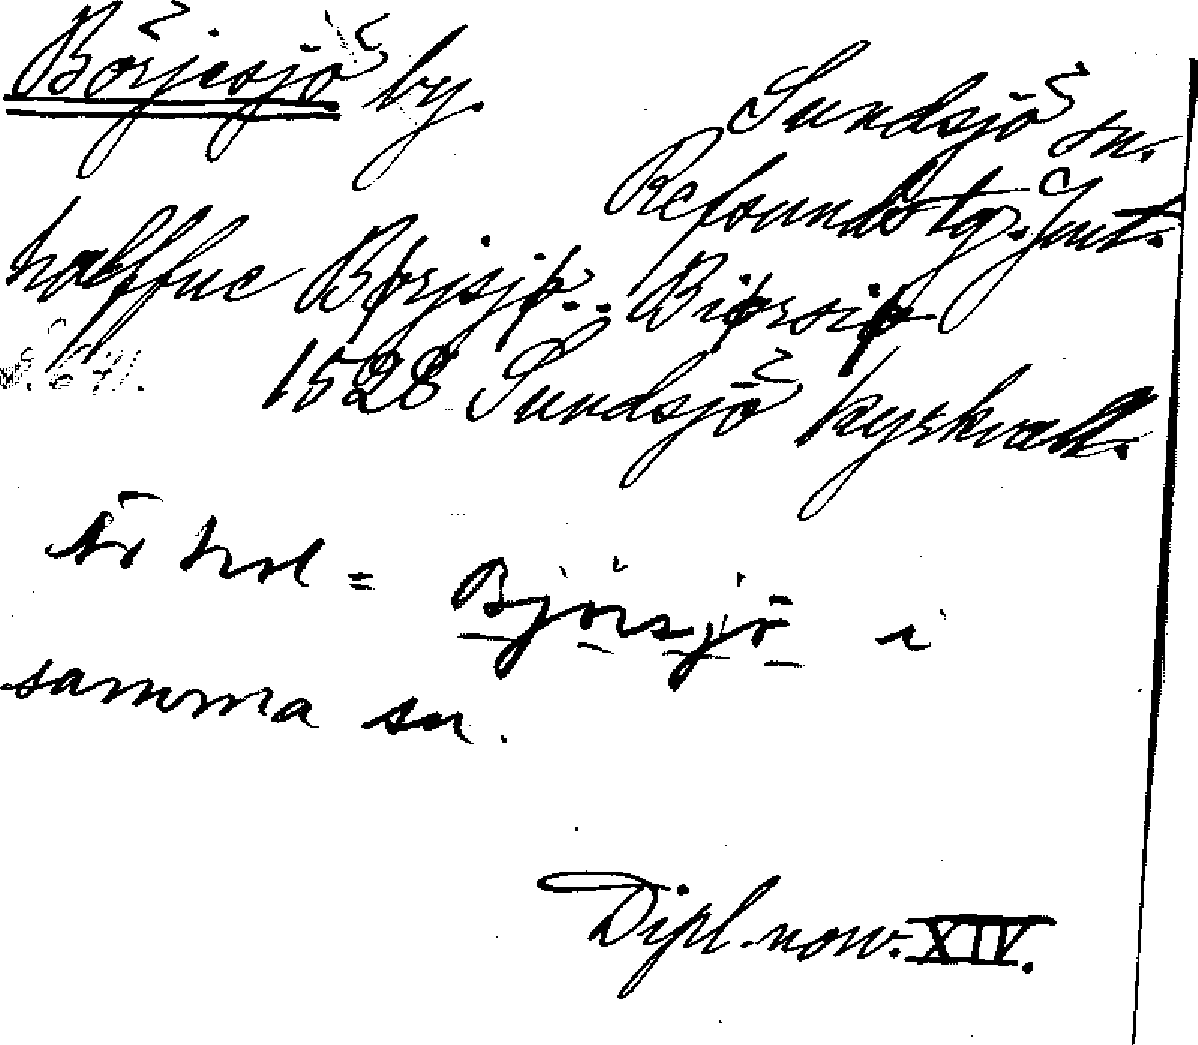 Börjesjö by.
Sundsjö sn.
Refsunds tg. Jmt.
halffue Børjsjø.. Biørsiø
s. 671. 1528 Sundsjö kyrkvall.
Är väl = Björsjö i
samma sn.
Dipl. norv. XIV.